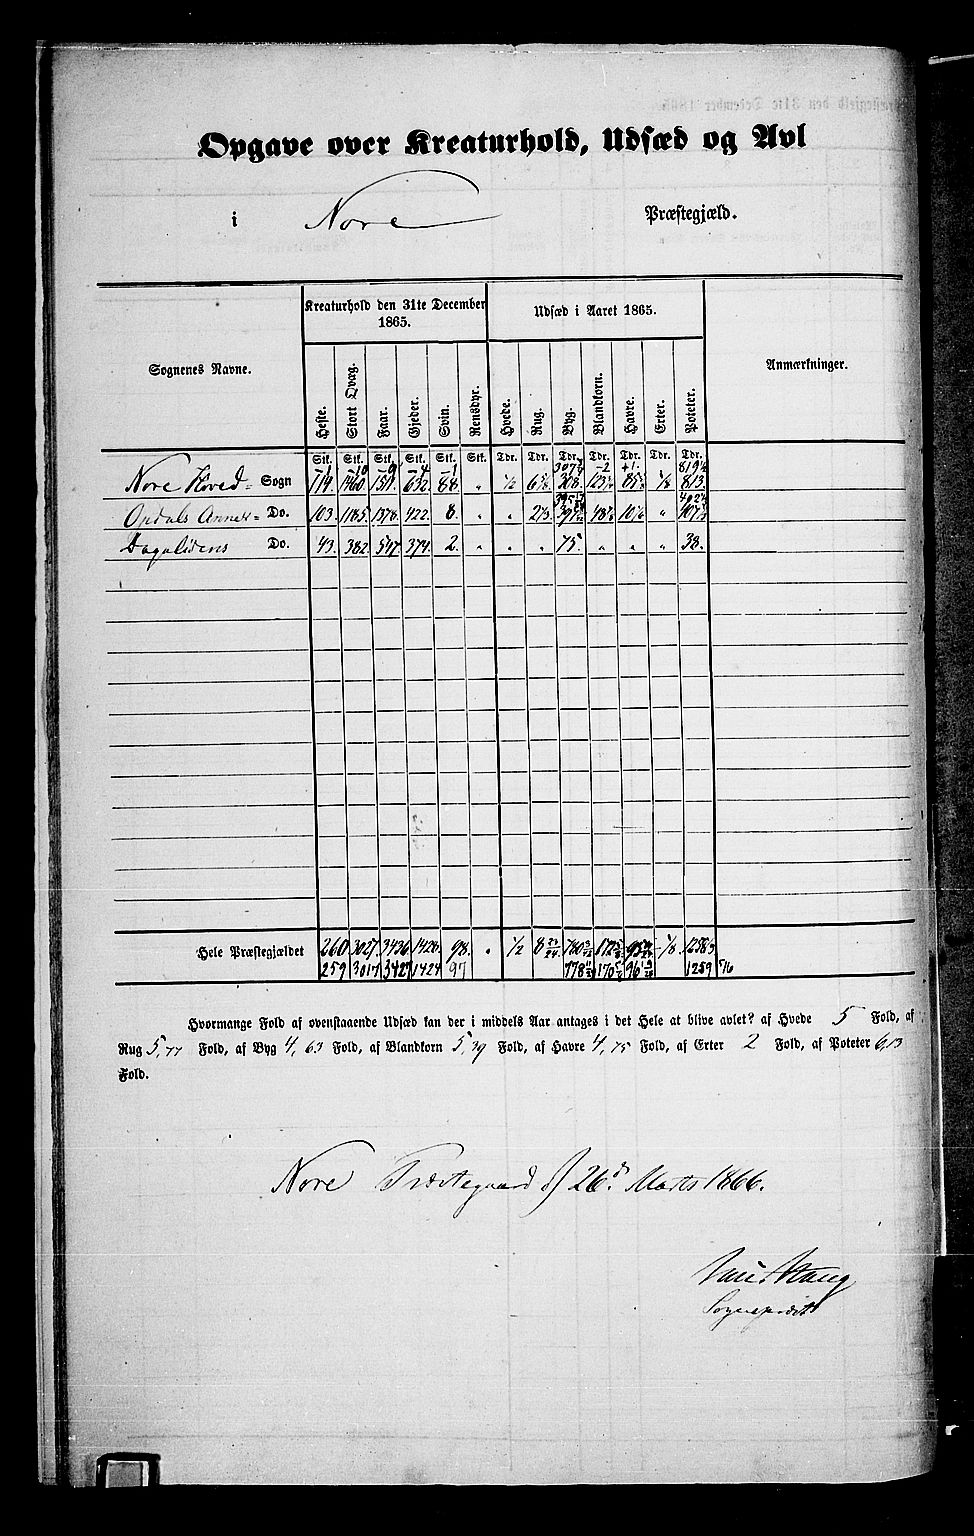 Opgave over Kreaturhold, Udsæd og Avl
i Nore Præstegjæld.
Sognenes Navne. Kreaturhold den 31te December 1865. Udsæd i Aaret 1865. Anmærkninger.
Heste. Stort Qvæg. Faar. Gjeder. Svin. Rensdyr. Hvede. Rug. Byg. Blandkorn. Havre. Erter. Poteter.
Stk. Stk. Stk. Stk. Stk. Stk. Tdr. Tdr. Tdr. Tdr. Tdr. Tdr. Tdr.
-1 -10 -9 -4 -1 -2 +1
Nore Hoved- Sogn 114. 1460. 1511. 632. 88. " ½ 813.
Opdals Annex- Do. 103. 1185. 1378. 422. 8. " "
Dagalidens Do. 43. 382. 547. 374. 2. " " " 75. " " " 38.
Hele Præstegjældet 260 3027 3436 1428 98. " ½
259 3017 3427 1424 97 1259
Hvormange Fold af ovenstaaende Udsæd kan der i middels Aar antages i det Hele at blive avlet? af Hvede 5 Fold, af
Rug 5,77 Fold, af Byg 4,63 Fold, af Blandkorn 5,39 Fold, af Havre 4,75 Fold, af Erter 2 Fold, af Poteter 6,13
Fold.
Nore Præstegaard 26 Marts 1866.
Sognepræst